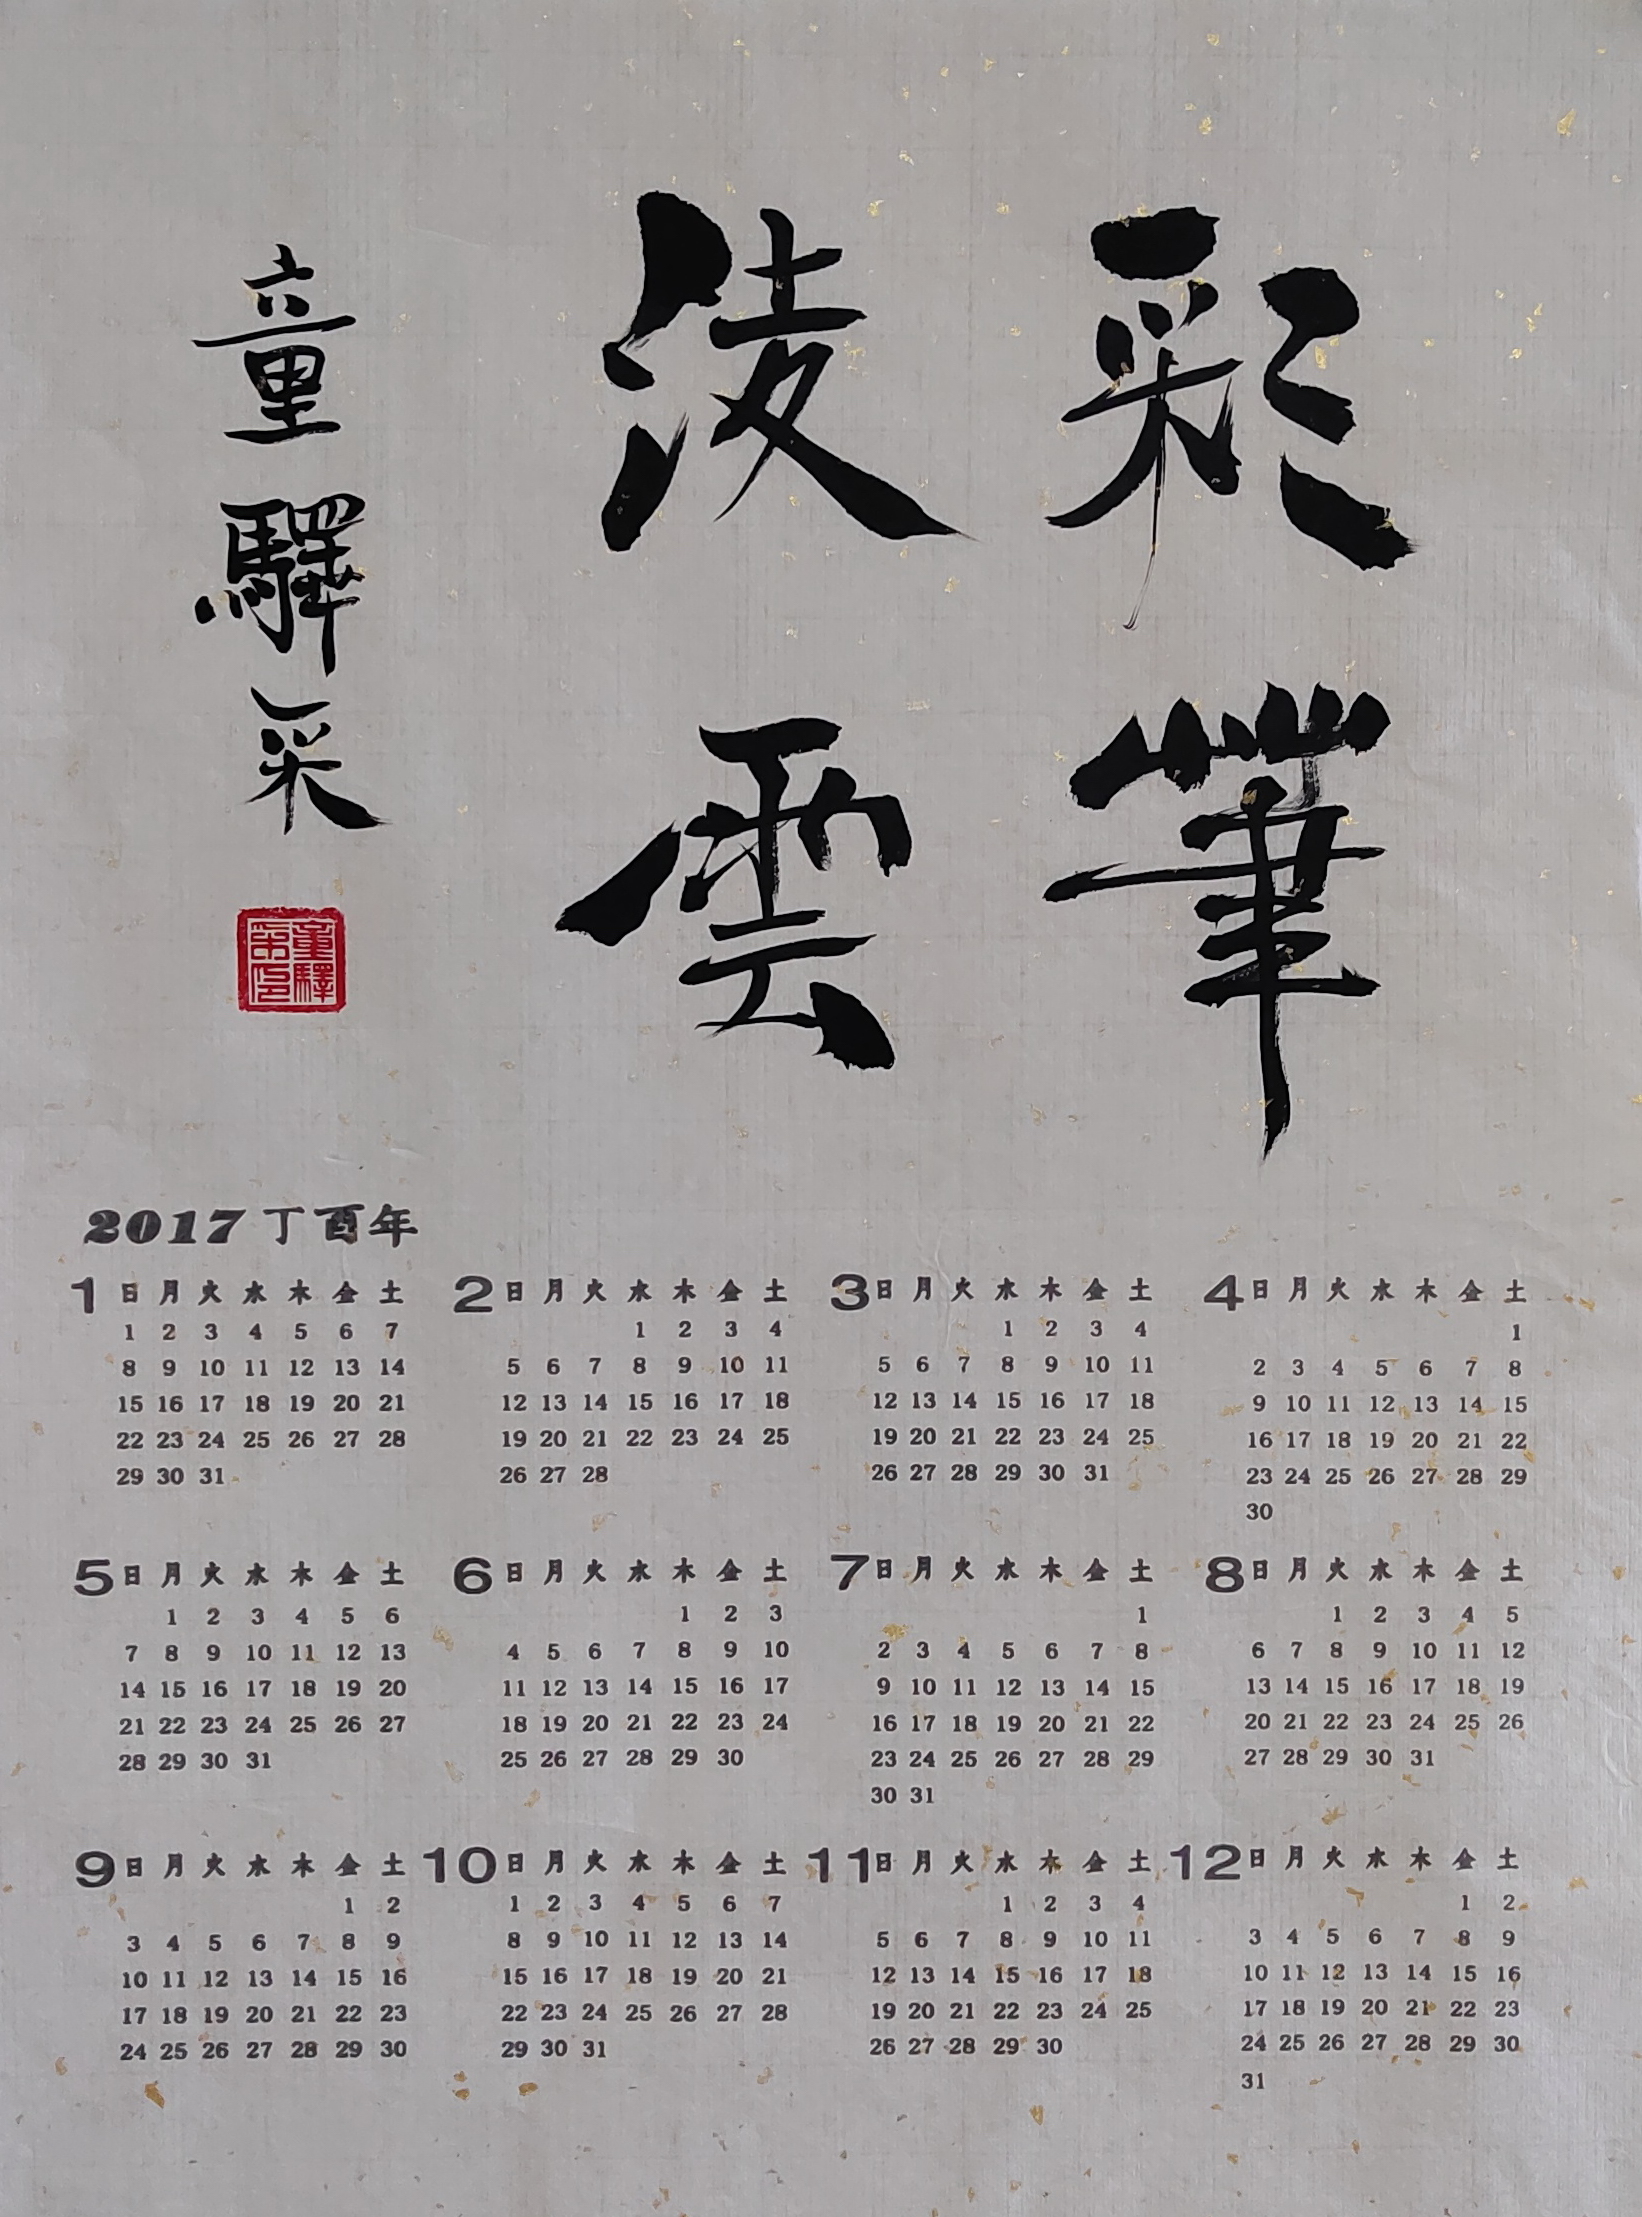 彩筆
淩雲
童驛采
童驛
采印
2017丁酉年
1 日 月 火 水 木 金 土
1 2 3 4 5 6 7
8 9 10 11 12 13 14
15 16 17 18 19 20 21
22 23 24 25 26 27 28
29 30 31
2 日 月 火 水 木 金 土
1 2 3 4
5 6 7 8 9 10 11
12 13 14 15 16 17 18
19 20 21 22 23 24 25
26 27 28
3 日 月 火 水 木 金 土
1 2 3 4
5 6 7 8 9 10 11
12 13 14 15 16 17 18
19 20 21 22 23 24 25
26 27 28 29 30 31
4 日 月 火 水 木 金 土
1
2 3 4 5 6 7 8
9 10 11 12 13 14 15
16 17 18 19 20 21 22
23 24 25 26 27 28 29
30
5 日 月 火 水 木 金 土
1 2 3 4 5 6
7 8 9 10 11 12 13
14 15 16 17 18 19 20
21 22 23 24 25 26 27
28 29 30 31
6 日 月 火 水 木 金 土
1 2 3
4 5 6 7 8 9 10
11 12 13 14 15 16 17
18 19 20 21 22 23 24
25 26 27 28 29 30
7 日 月 火 水 木 金 土
1
2 3 4 5 6 7 8
9 10 11 12 13 14 15
16 17 18 19 20 21 22
23 24 25 26 27 28 29
30 31
8 日 月 火 水 木 金 土
1 2 3 4 5
6 7 8 9 10 11 12
13 14 15 16 17 18 19
20 21 22 23 24 25 26
27 28 29 30 31
9 日 月 火 水 木 金 土
1 2
3 4 5 6 7 8 9
10 11 12 13 14 15 16
17 18 19 20 21 22 23
24 25 26 27 28 29 30
10 日 月 火 水 木 金 土
1 2 3 4 5 6 7
8 9 10 11 12 13 14
15 16 17 18 19 20 21
22 23 24 25 26 27 28
29 30 31
11 日 月 火 水 木 金 土
1 2 3 4
5 6 7 8 9 10 11
12 13 14 15 16 17 18
19 20 21 22 23 24 25
26 27 28 29 30
12 日 月 火 水 木 金 土
1 2
3 4 5 6 7 8 9
10 11 12 13 14 15 16
17 18 19 20 21 22 23
24 25 26 27 28 29 30
31